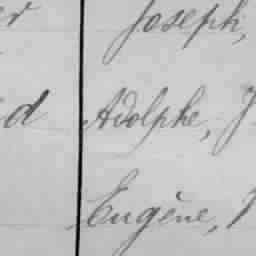 Joseph,
d Adolphe, J
Eugène,